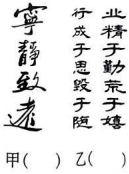 寧靜致遠
业精于勤荒于嬉
行成于思毁于随
甲(　) 乙(　)